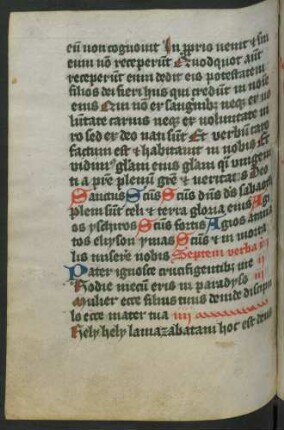 eū non cognouit In ꝓpris uenit ⁊ sui
eum nō receperūt Quodquot aūt
receperūt eum dedit eis potestatem
filios dei fieri hijs qui credūt in noīe
eius Qui nō ex sanguinibꝫ neqꝫ ex uo
lūtate carnis neqꝫ ex voluntate ui
ri sed ex deo nati sūt Et verbū caro
factum est ⁊ habitauit in nobis Et
vidimꝰ gl̄am eius gl̄am q̄si vnigeni
ti a pr̄e plenū gr̄e ⁊ veritatis Deo
Sanctus Scūs Scūs dn̄s dꝰs sabaoth
pleni sūt celi ⁊ terra gloria eius Agi
os yschyros Scūs fortis Agios athana
tos eleyson ymas Scūs ⁊ in morta
lis miserere nobis Septem verba
Pater ignosce crucifigentibꝫ me
Hodie mecū eris in paradyso
Mulier ecce filius tuus deinde discipu
lo ecce mater tua iiii
Hely hely lamazabatani hoc est deus